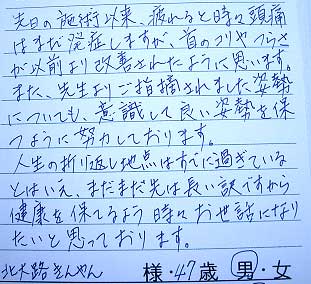 先日の施術以来、疲れると時々頭痛
はまだ発症しますが、首のコリやつらさ
が以前より改善されたように思います。
また、先生よりご指摘されました姿勢
についても、意識して良い姿勢を保
つように努力しております。
人生の折り返し地点はすでに過ぎている
とはいえ、まだまだ先は長い訳ですから
健康を保てるよう時々お世話になり
たいと思っております。
北大路きんやん 様・47歳 男・女